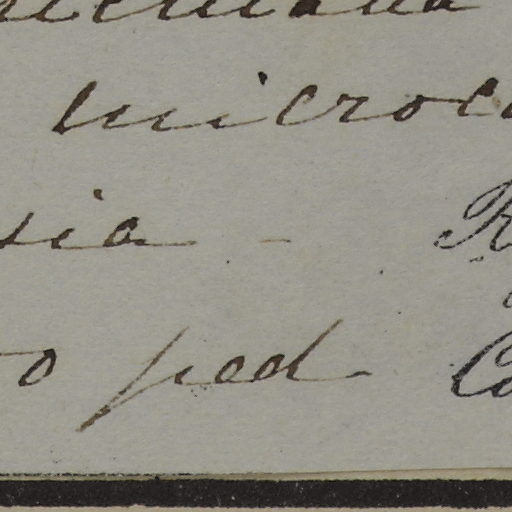 microc
sia - R
o ped. Co